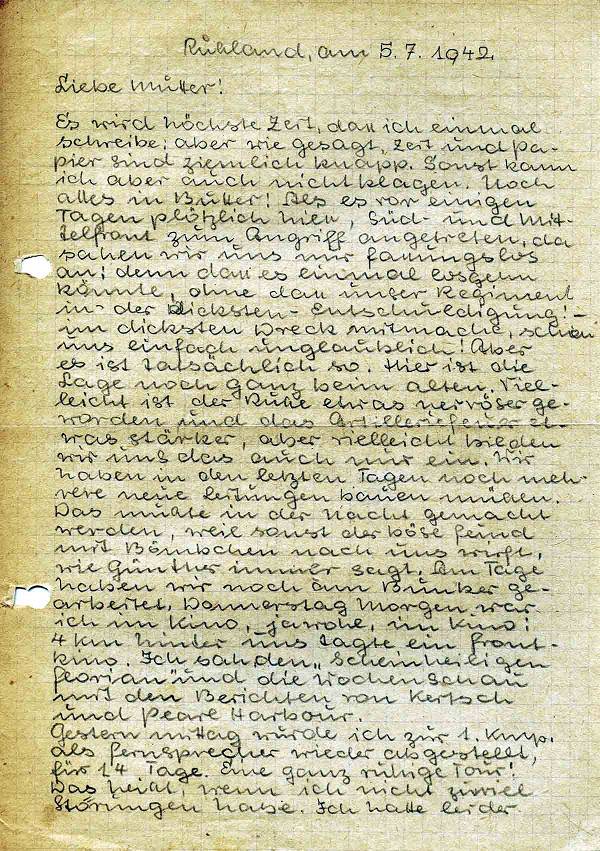 Rußland, am 5.7.1942.
Liebe Mutter!
Es wird höchste Zeit, daß ich einmal
schreibe; aber wie gesagt, Zeit und Pa-
pier sind ziemlich knapp. Sonst kann
ich aber auch nicht klagen. Noch
alles in Butter! Als es vor einigen
Tagen plötzlich hieß, Süd- und Mit-
telfront zum Angriff angetreten, da
sahen wir uns nur fassungslos
an; denn daß es einmal losgehn
könnte, ohne daß unser Regiment
in der dicksten - Entschuldigung! -
im dicksten Dreck mitmache, schien
uns einfach unglaublich! Aber
es ist tatsächlich so. Hier ist die
Lage noch ganz beim alten. Viel-
leicht ist der Ruße etwas nervöser ge-
worden und das Artilleriefeuer et-
was stärker, aber vielleicht bilden
wir uns das auch nur ein. Wir
haben in den letzten Tagen noch meh-
rere neue Leitungen bauen müßen.
Das mußte in der Nacht gemacht
werden, weil sonst der böse Feind
mit Bömbchen nach uns wirft,
wie Günther immer sagt. Am Tage
haben wir noch am Bunker ge-
arbeitet. Donnerstag Morgen war
ich im Kino, jawohl, im Kino!
4 km hinter uns tagte ein Front-
kino. Ich sah den „Scheinheiligen
Florian" und die Wochenschau
mit den Berichten von Kertsch
und Pearl Harbour.
Gestern mittag wurde ich zur 1. Komp.
als Fernsprecher wieder abgestellt,
für 14 Tage. Eine ganz ruhige Tour!
Das heißt, wenn ich nicht zuviel
Störungen habe. Ich hatte leider